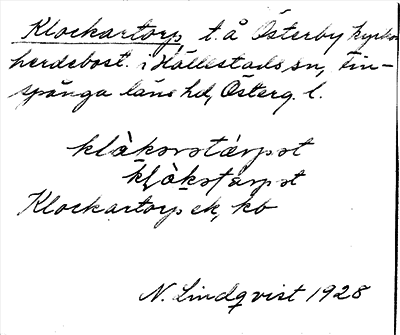 Klockartorp t. å Österby kyrko-
herdebost. i Hällestads sn, Fin-
spånga läns hd, Österg. l.
klàkorstárpɘt
klòkstarpɘt
Klockartorp ek, kb
N. Lindqvist 1928